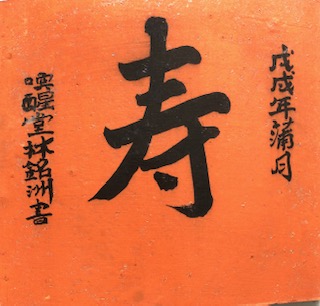 戊戌年蒲月
寿
喚醒堂林銘洲書